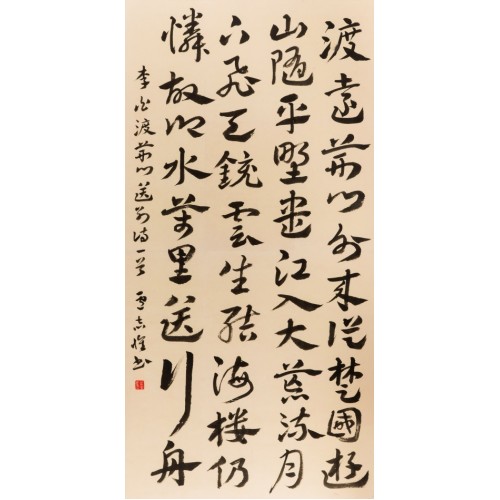 渡遠荊門外來從楚國遊
山隨平野盡江入大荒流月
下飛天鏡雲生結海樓仍
憐故鄉水萬里送行舟
李白渡荊門送別詩一首 書